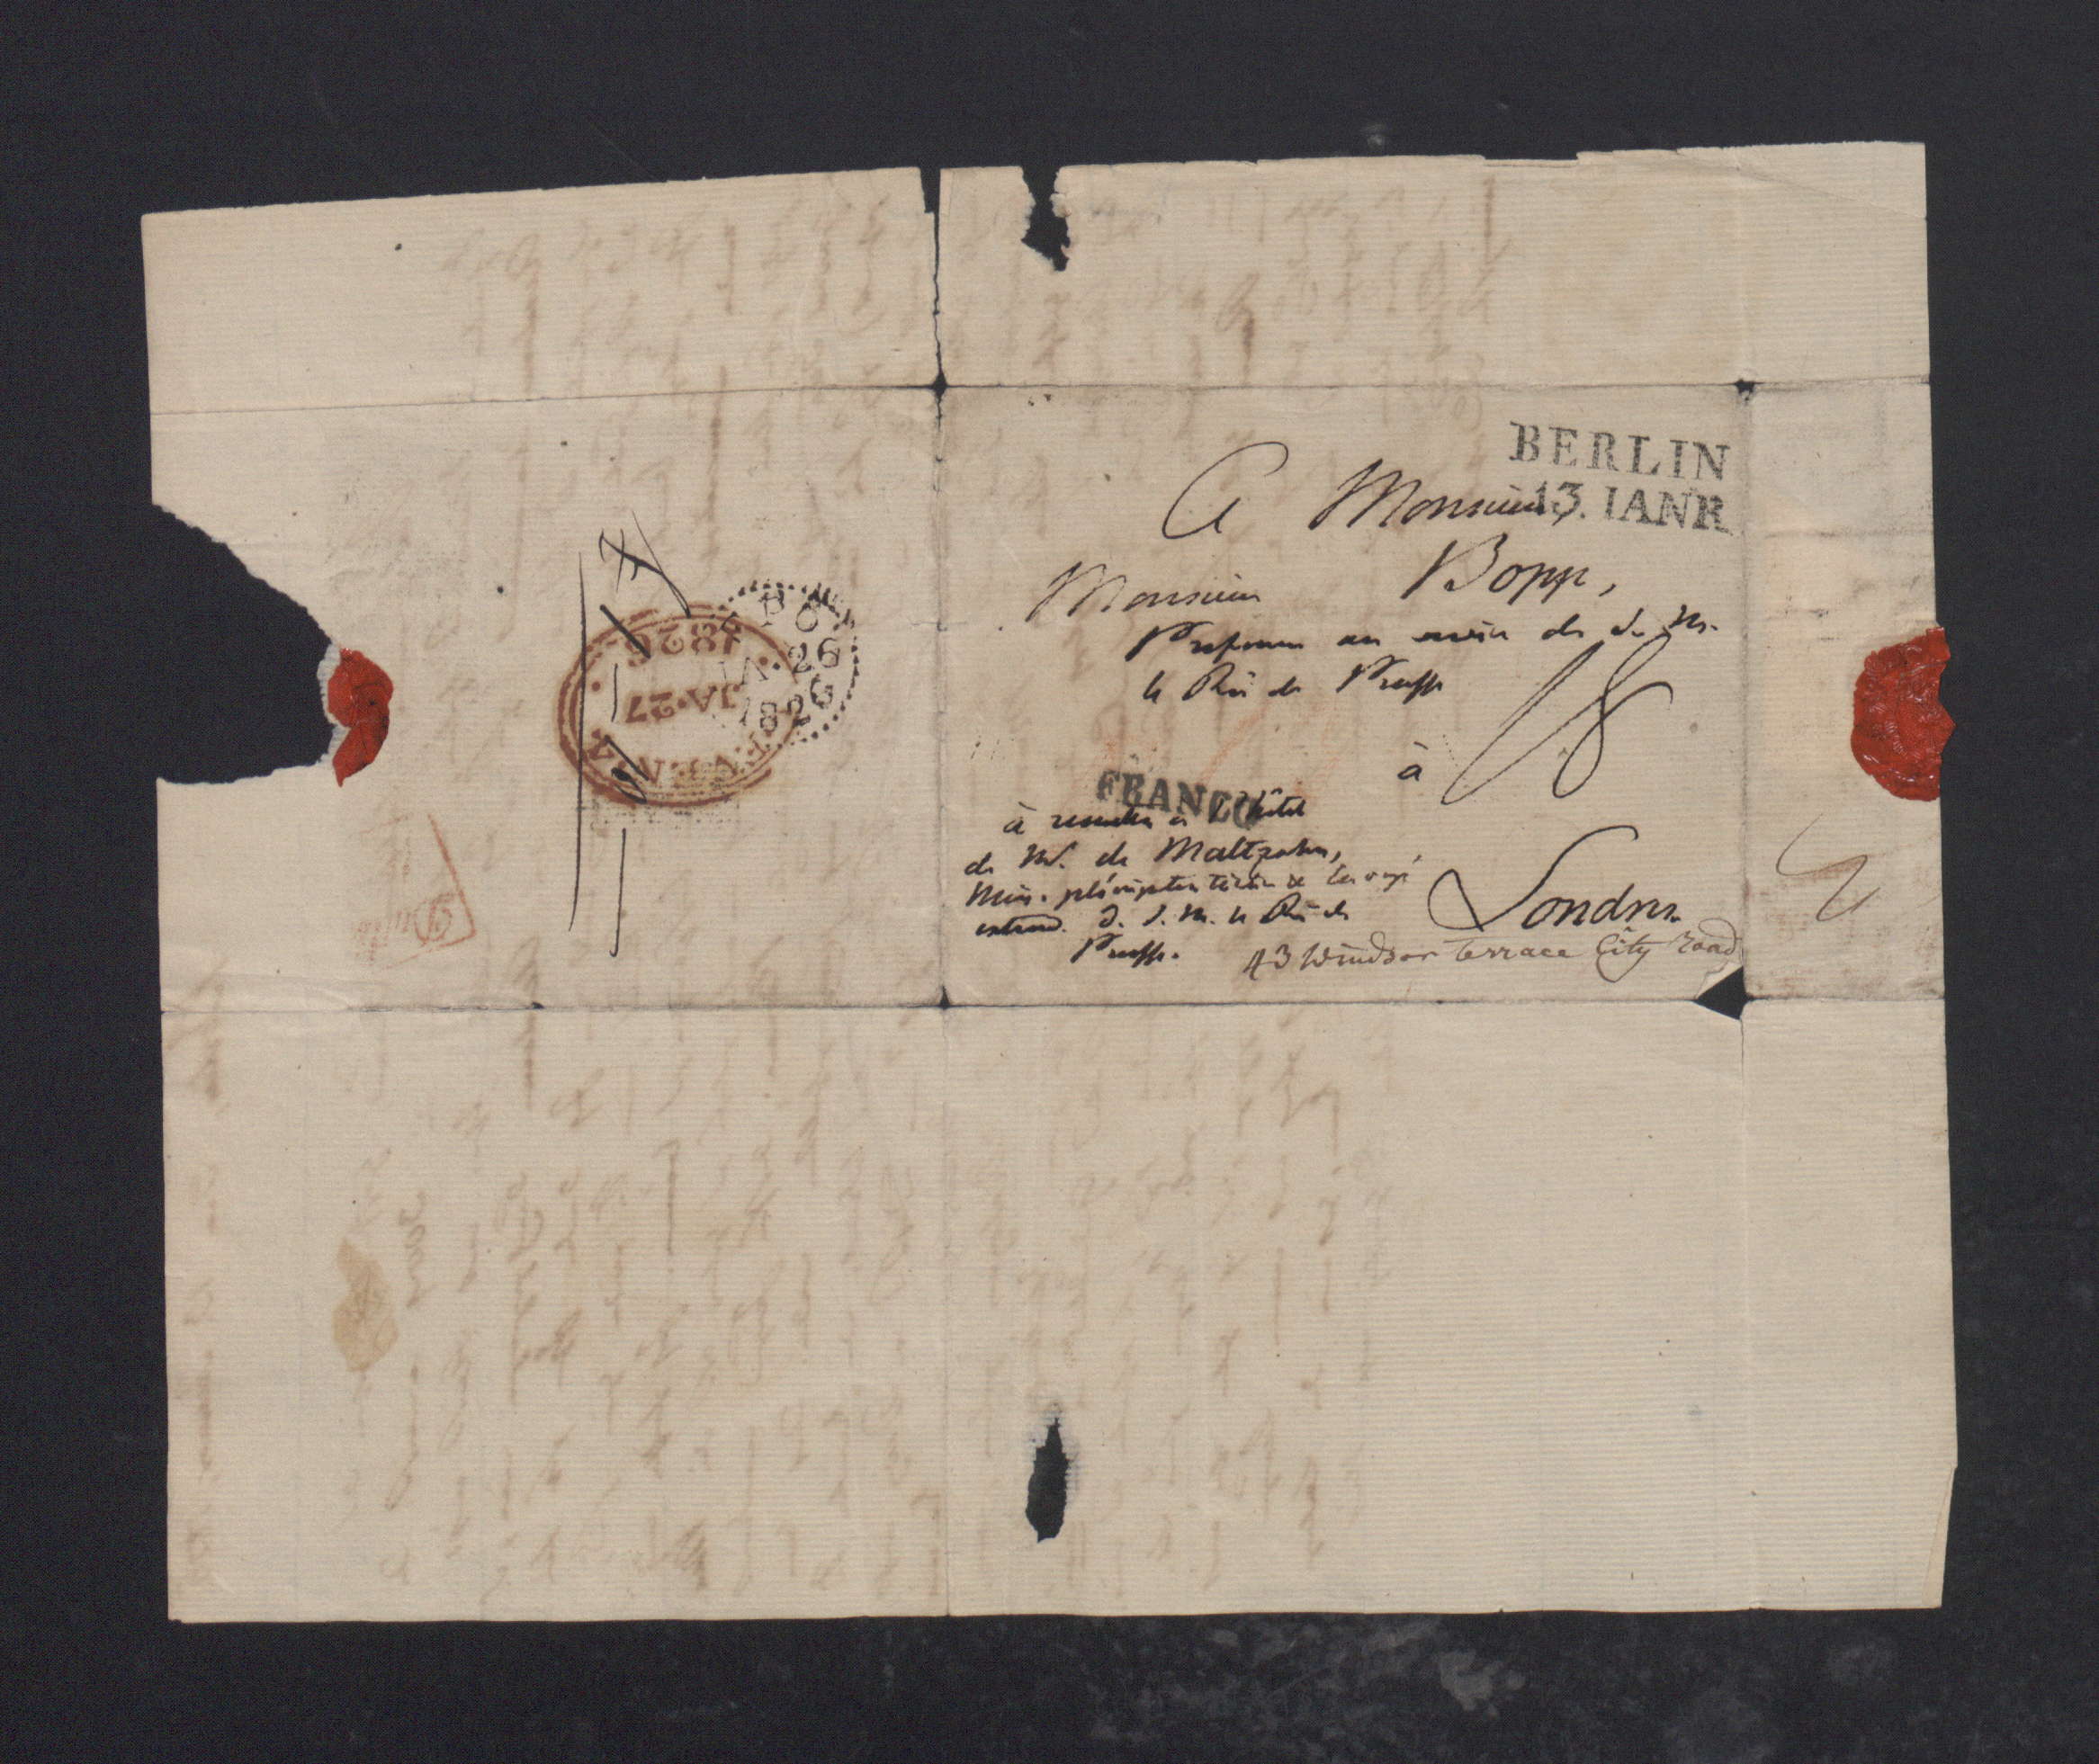 BERLIN
13. IANR
A Monsieur,
Monsieur Bopp,
Professeur au service de S. M.
le Roi de Prusse
à
18
FRANCO
à remettre à l'hôtel
de M. de Maltzahn,
Min. plénipotentiaire &
extraord. d. S. M. le Roi de
Prusse.
Londres.
43 Windsor Terrace City Road
1826
JA·27
JA·26
1826